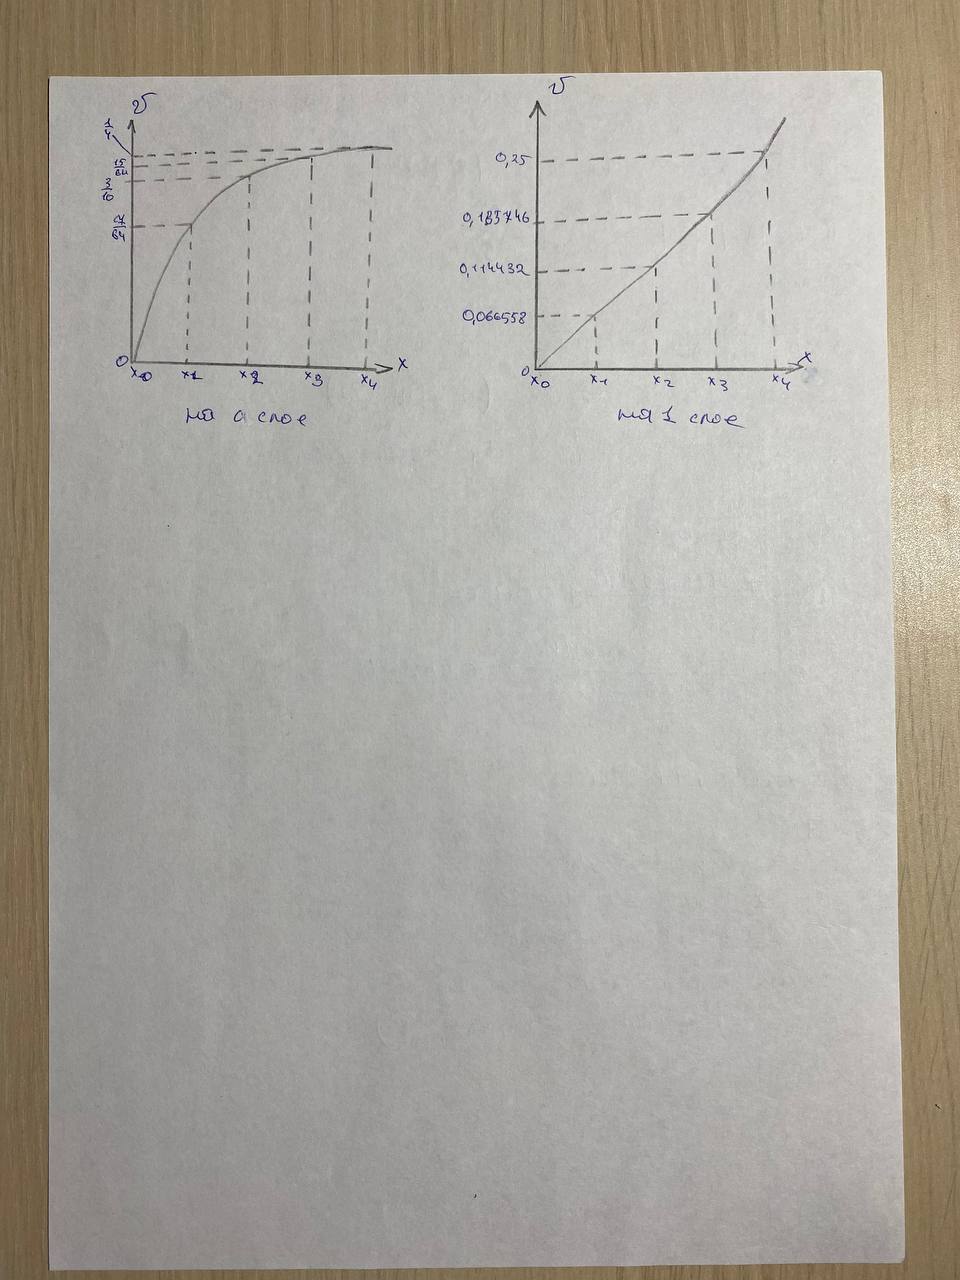 v
1/4
15/64
3/16
7/64
0
x0 x1 x2 x3 x4 x
на 0 слое
v
0,25
0,114432
0,066558
0
x0 x1 x2 x3 x4 x
на 1 слое